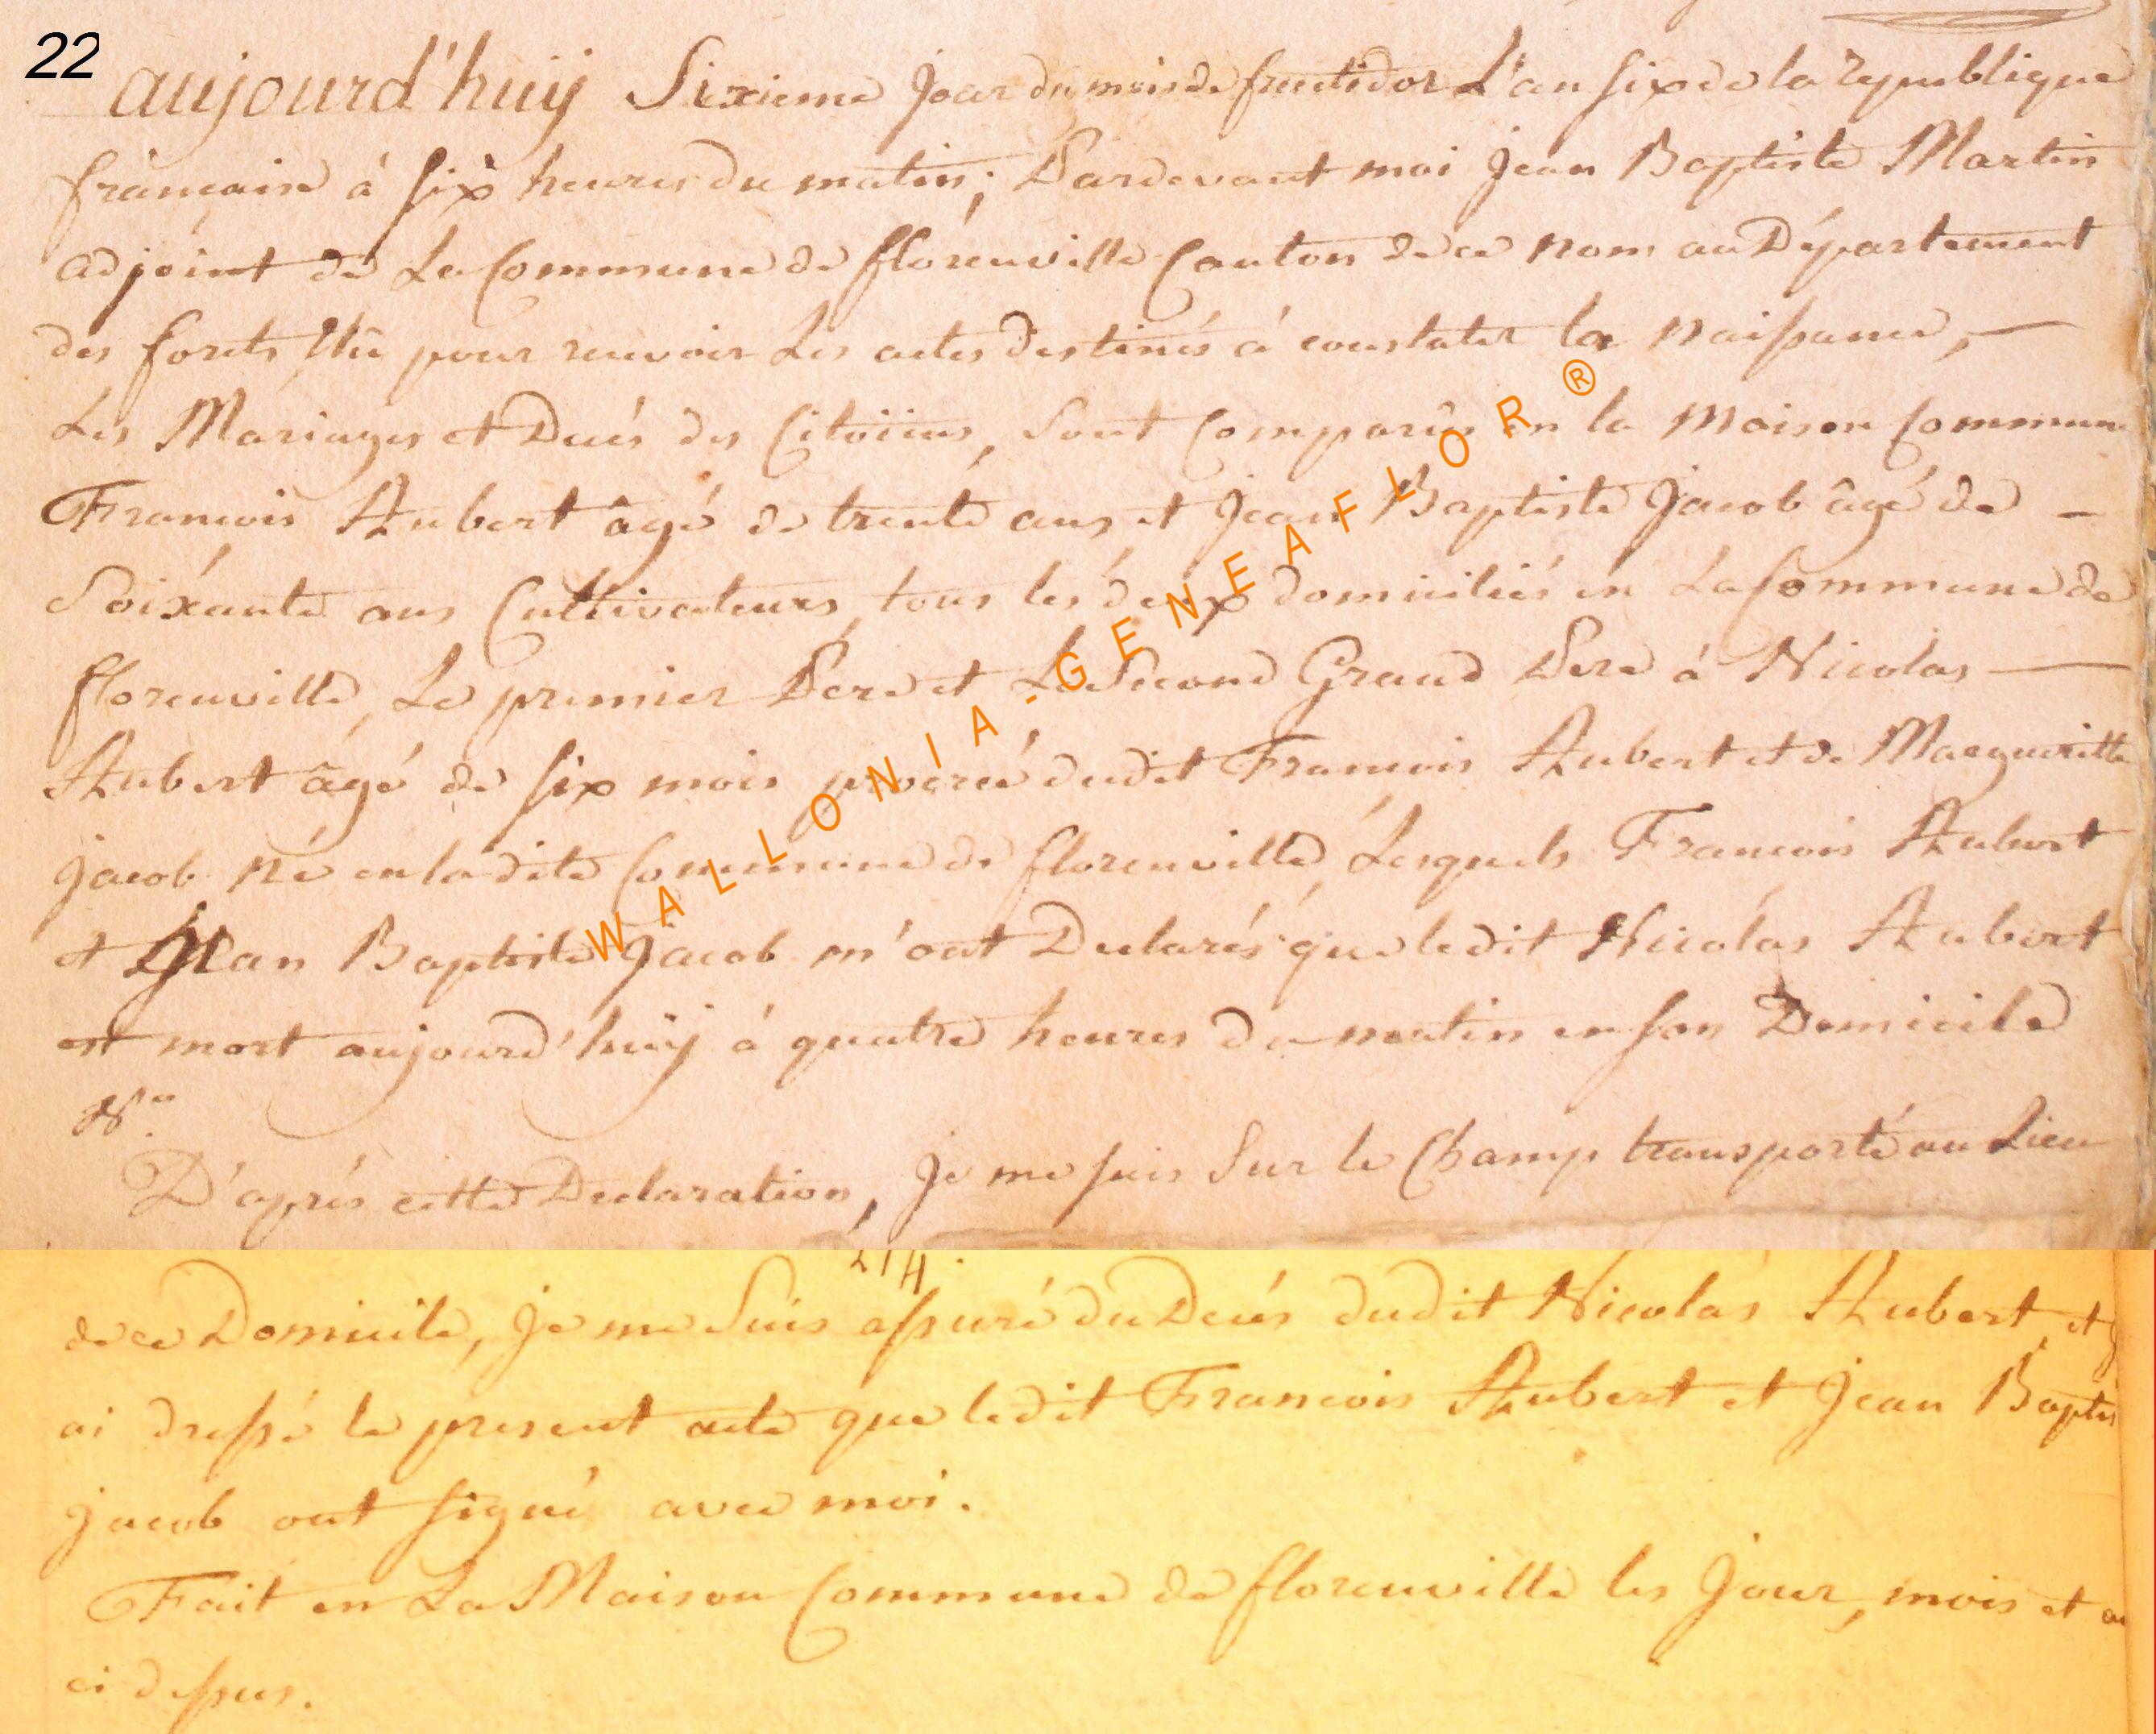 22
aujourd'huij Sixieme Jour du mois de fructidor L'an six de la republique
francaise à six heures du matin; Pardevant moi Jean Baptiste Martin
adjoint de La Commune de florenville Canton de ce nom au Département
des forets Elû pour recevoir Les actes destinés à constater la naissance, —
Les Mariages et Decés des Citoiiens, sont Comparûs en la maison Commune
Francois Aubert âgé de trente ans, et Jean Baptiste Jacob âgé de -
Soixante ans Cultivateurs, tous les deux domiciliés en La Commune de
florenville, Le premier Pere et Le Second Grand Pere à Nicolas —
Aubert âgé de six mois procreé dudit Francois Aubert et de Margueritte
Jacob né en la dite Commune de florenville, Lesquels Francois Aubert
et Jean Baptiste Jacob m'ont Declarés que ledit Nicolas Aubert
est mort aujourd'huij à quatre heures du matin en son Domicile
Nª.
D'aprés cette Declaration, Je me suis Sur le Champ transporté au Lieu
214.
de ce Domicile, Je me Suis assuré du Decés dudit Nicolas Aubert, et j
ai dressé le present acte que ledit Francois Aubert et Jean Baptis
Jacob ont signé avec moi.
Fait en La Maison Commune de florenville les Jour, mois et an
ci dessus.
WALLONIA-GENEAFLOR®